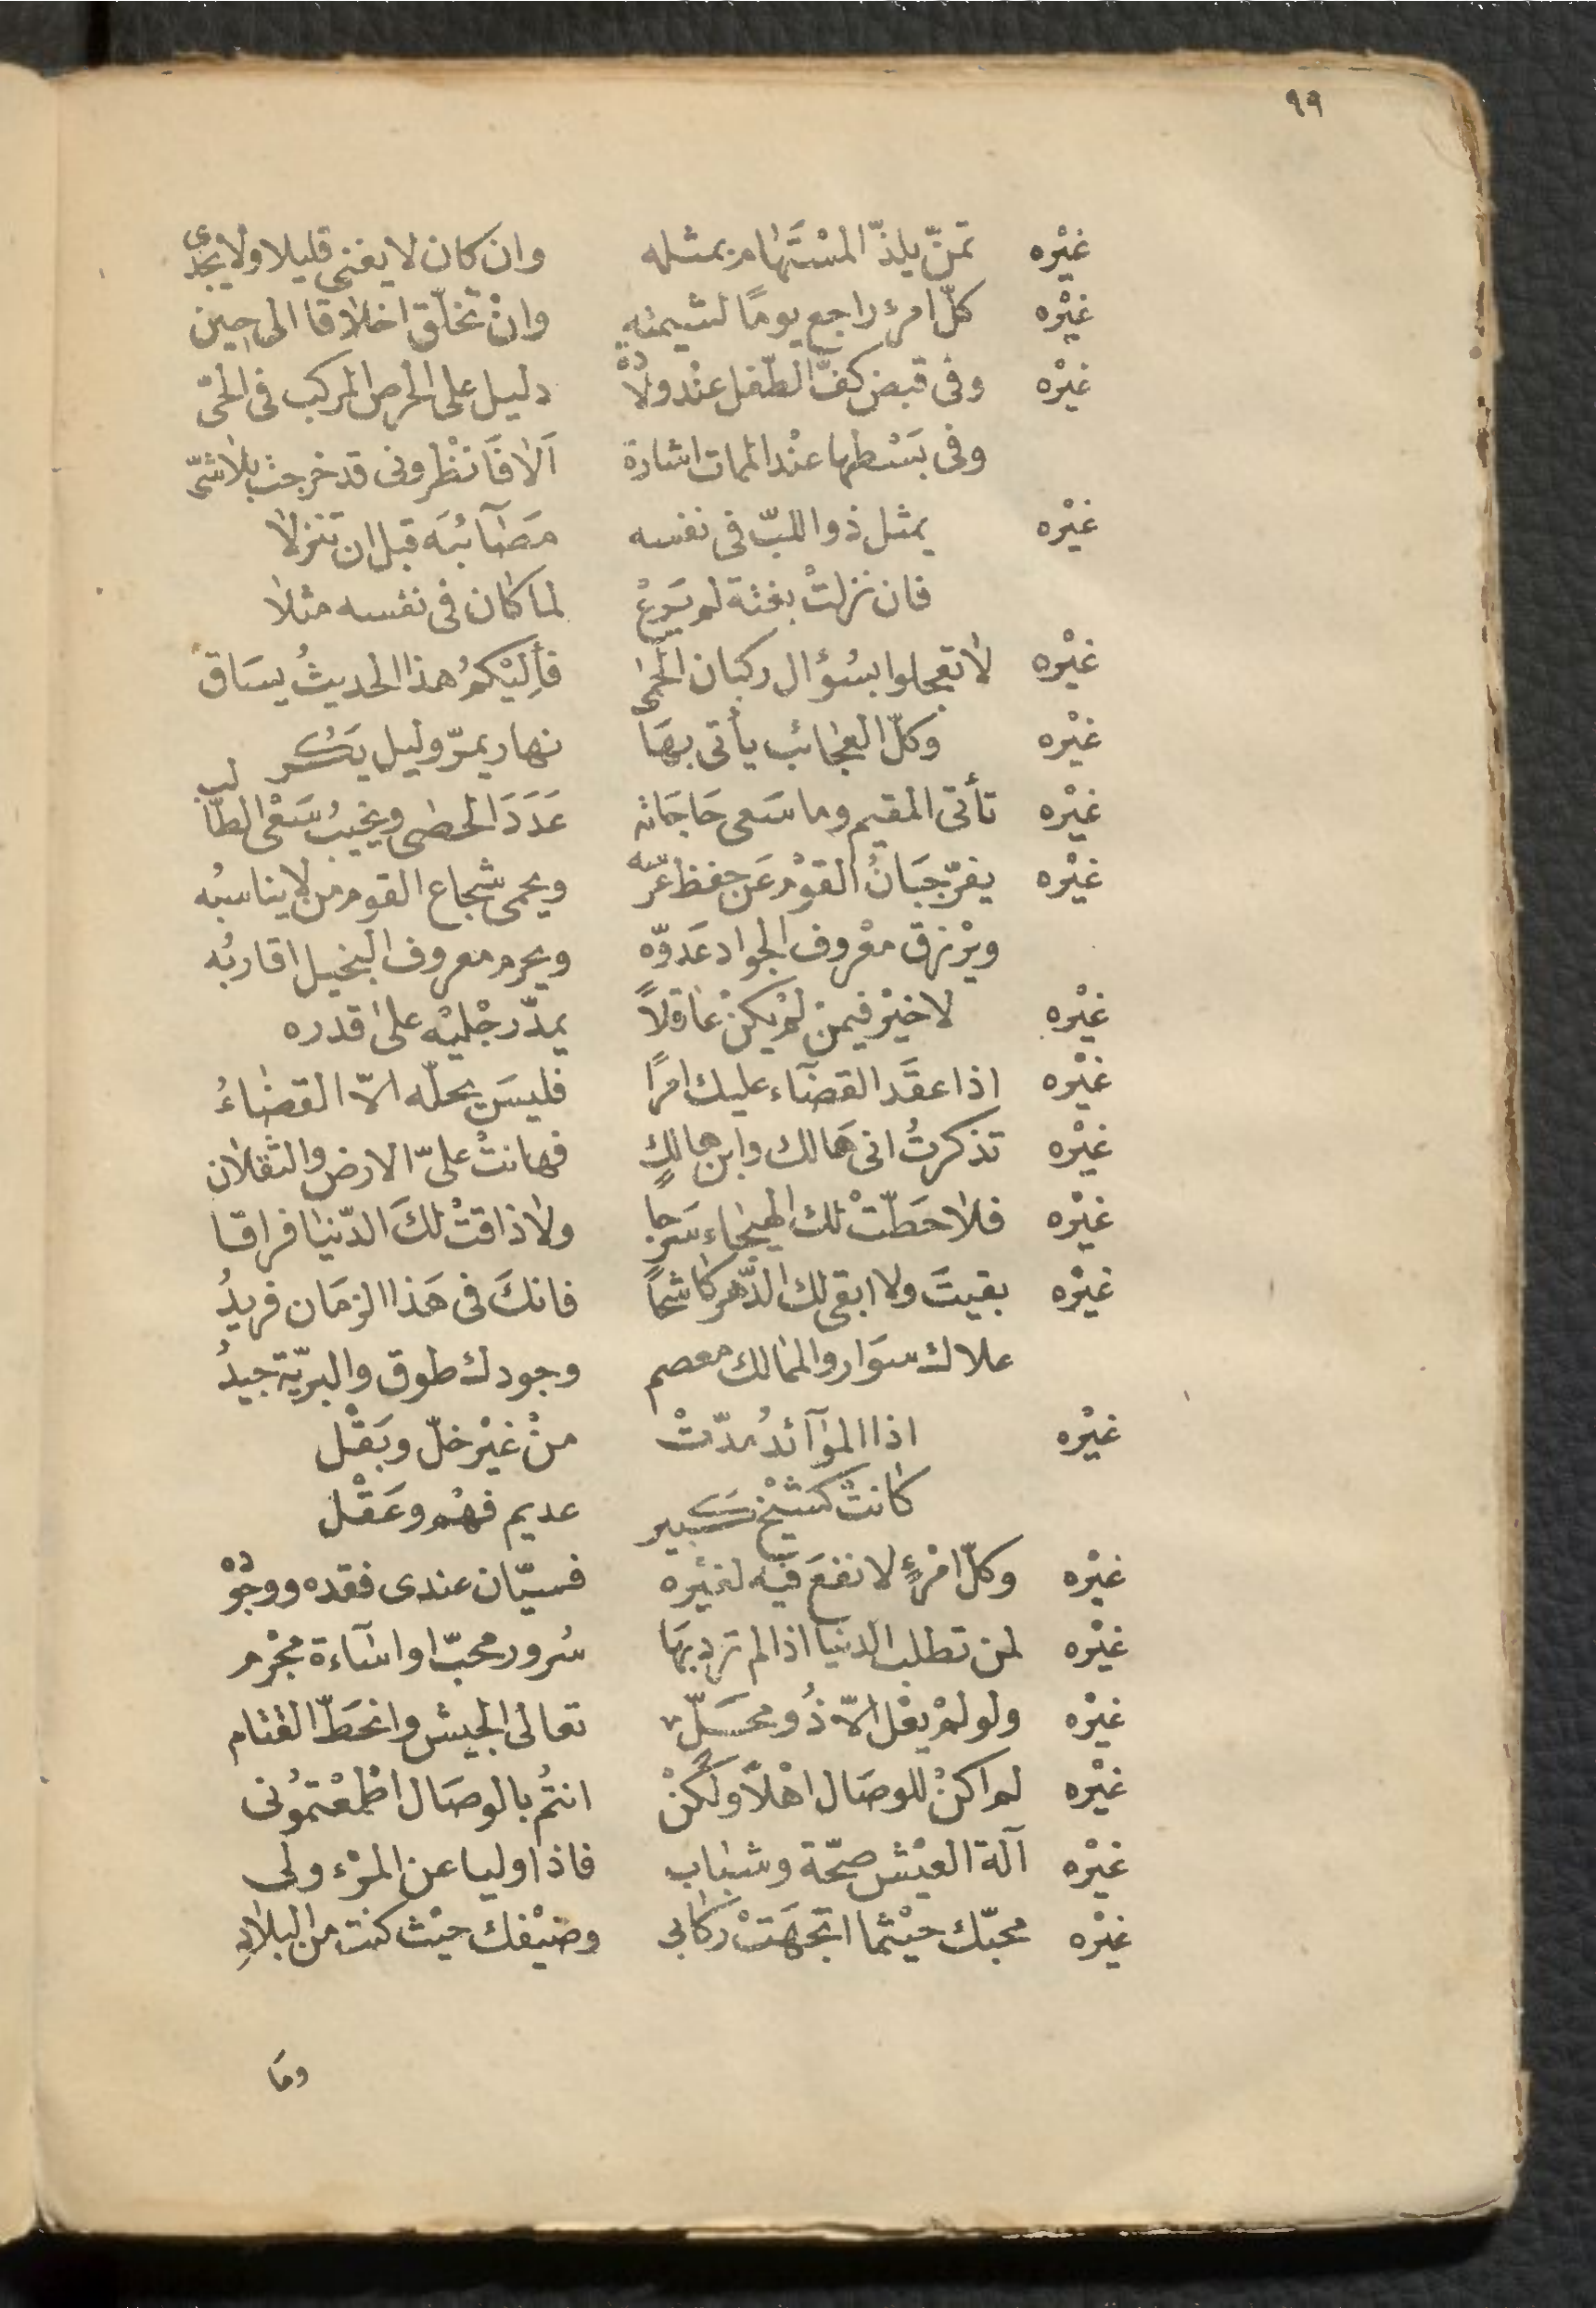 ٩٩
غيْره تمنّ يلذّ المسْتَهام بمثله وان كان لا يغنى قليلا ولا يجدى
غيْره كلّ امرئ راجع يومًا لشيمته وانْ تخلّق اخلاقا الى حين
غيْره وفى قبض كفّ الطّفل عنْد ولادْه دليل على الحرص المركب فى الحىّ
وفى بَسْطها عنْد الممات اشارة اَلا فَانْظرونى قد خرجت بلا شىّ
غيْره يمثل ذو اللبّ فى نفسه مَصَآئبَه قبل ان تنزلا
فان نزلتْ بغتة لم يَرعْ لما كان فى نفسه مثلا
غيْره لا تعجلوا بسُؤال ركبان الحمى فأِليْكمُ هذا الحديثُ يسَاق
غيْره وكلّ العجائب يأتى بهَا نهار يمرّ وليل يَكر
غيْره تأتى المقيم وما سَعى حَاجَاته عَدَدَ الحصى ويخيبُ سَعْى الطّالب
غيْره يفرّ جبَانُ القوْم عَن حفظ عرْسه ويحمى شجاع القوم من لا يناسبُه
ويرْزق معْروف الجواد عَدوّه ويحرم معروف البخيل اقاربُه
غيْره لا خيْر فيمنْ لمْ يكنْ عاقلاً يمدّ رجْليْه على قدره
غيْره اذا عقَد القضآء عليك امرًا فليسَ يحلّه الاّ القضاءُ
غيْره تذكرتُ انى هَالك وابن هالكٍ فهانتْ علىّ الارض والثقلان
غيْره فلا حَطّتْ لك الهيجاء سَرجا ولا ذاقتْ لكَ الدّنيا فراقا
غيْره بقيتَ ولا ابقى لك الدّهر كاشحًا فانكَ فى هَذا الزمَان فريدُ
علاك سوَار والممالك معصم وجودك طوق والبريّة جيدُ
غيْره اذا الموآئدُ مدّتْ منْ غيْر خلّ وبَقْل
كانتْ كشيْخ كَبير عديم فهْم وعَقْل
غيْره وكلّ امْرءٍ لا نفعَ فيْه لغيْره فسيّان عندى فقده ووجوْده
غيْره لمن تطلب الدنيا اذا لم ترد بهَا سُرور محبّ او اسَآءة مجْرم
غيْره ولو لمْ يعْل الاّ ذُو محَلّ تعالى الجيش وانحَطّ القتام
غيْره لم اكنْ للوصَال اهْلاً ولكنْ انتُم بالوصَال اطْمعْتمُونى
غيْره آلة العيْش صحّة وشباب فاذا وليا عن المرْء ولى
غيْره محبّك حيْثما اتجَهَتْ ركابى وضيْفك حيْث كنت من البلادِ
ومَا